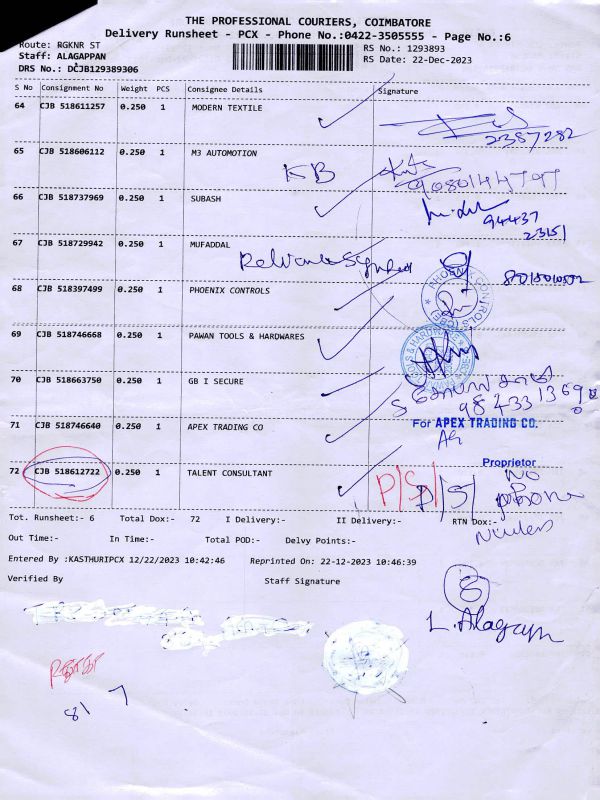 THE PROFESSIONAL COURIERS, COIMBATORE
Delivery Runsheet - PCX - Phone No.:0422-3505555 - Page No.:6
Route: RGKNR ST
RS No.: 1293893
Staff: ALAGAPPAN
RS Date: 22-Dec-2023
DRS No.: DCJB129389306
S No Consignment No Weight PCS Consignee Details Signature
64 CJB 518611257 0.250 1 MODERN TEXTILE
2387282
65 CJB 518606112 0.250 1 M3 AUTOMOTION
KB
9080144797
66 CJB 518737969 0.250 1 SUBASH
94437
23151
67 CJB 518729942 0.250 1 MUFADDAL
68 CJB 518397499 0.250 1 PHOENIX CONTROLS
PHOENIX CONTROLS
69 CJB 518746668 0.250 1 PAWAN TOOLS & HARDWARES
70 CJB 518663750 0.250 1 GB I SECURE
71 CJB 518746640 0.250 1 APEX TRADING CO
For APEX TRADING CO.
Proprietor
72 CJB 518612722 0.250 1 TALENT CONSULTANT
P/S/ P/S/ No
phone
Tot. Runsheet:- 6 Total Dox:- 72 I Delivery:- II Delivery:- RTN Dox:-
Out Time:- In Time:- Total POD:- Delvy Points:-
Entered By :KASTHURIPCX 12/22/2023 10:42:46 Reprinted On: 22-12-2023 10:46:39
Verified By Staff Signature
8
L. Alagapp
8/7